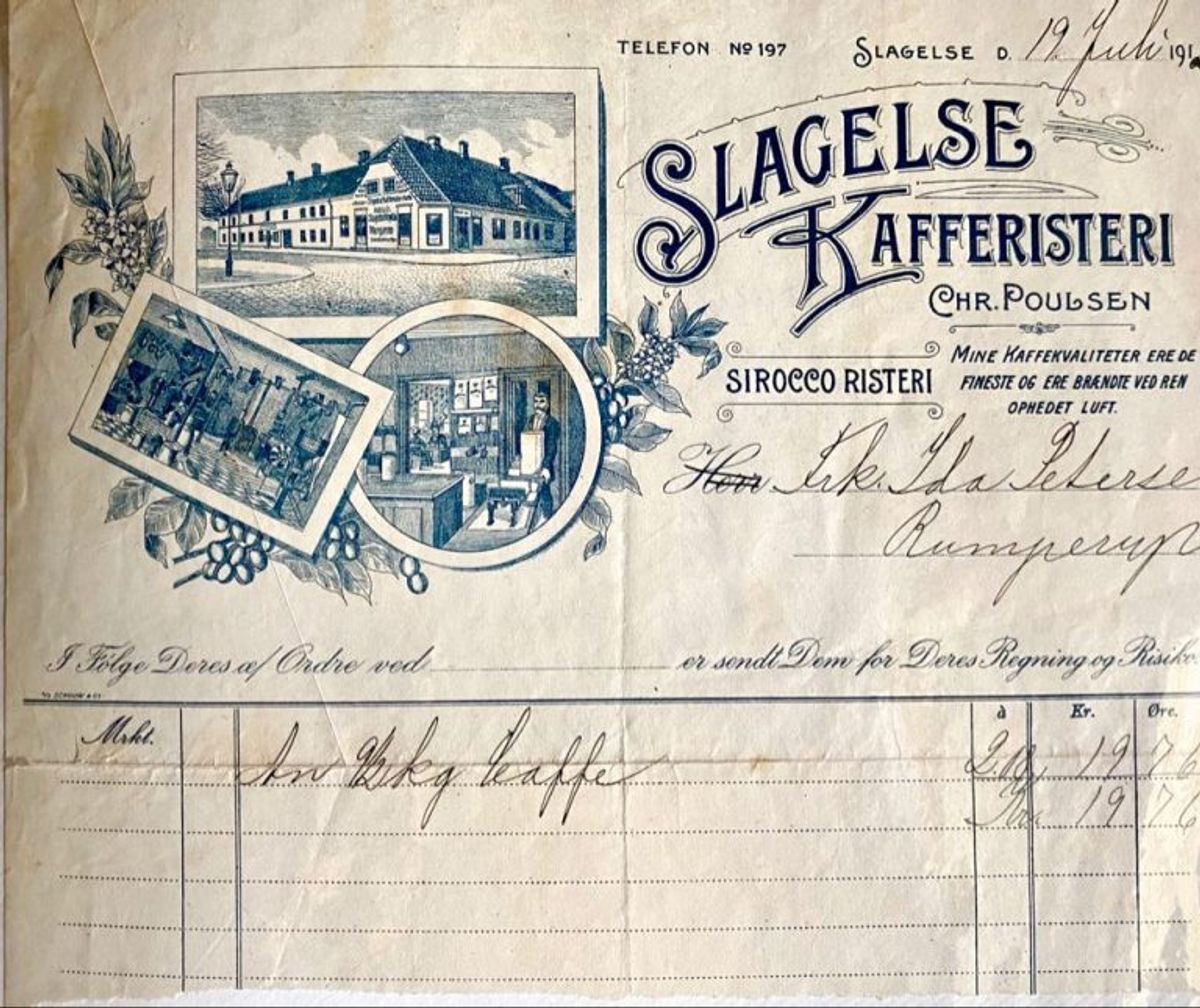 TELEFON Nº 197 SLAGELSE D. 19. Juli 191
SLAGELSE
KAFFERISTERI
CHR. POULSEN
SIROCCO RISTERI
MINE KAFFEKVALITETER ERE DE
FINESTE OG ERE BRÆNDTE VED REN
OPHEDET LUFT.
Herr Frk. Ida Peterse
I Følge Deres æf Ordre ved er sendt Dem for Deres Regning og Risiko
Mrkt. à Kr. Øre.
An kg Caffe 19 76
Kr. 19 76